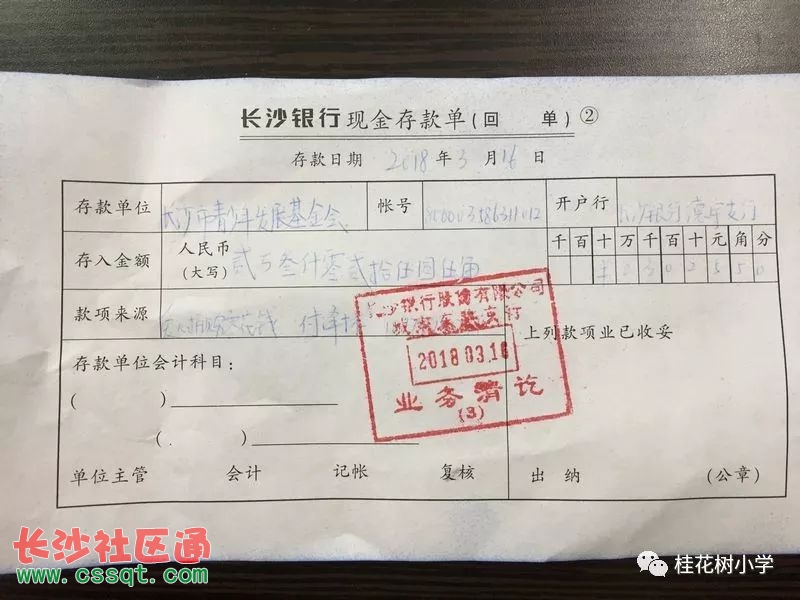 长沙银行现金存款单(回 单)②
存款日期 2018年3月16日
存款单位 长沙市青少年发展基金会 帐号 开户行 长沙银行
存入金额 人民币(大写) 贰万叁仟零贰拾伍圆伍角 千百十万千百十元角分
¥2302550
款项来源 付
上列款项业已收妥
长沙银行股份有限公司
2018 03.16
业务清讫
(3)
存款单位会计科目:
( )
( )
单位主管 会计 记帐 复核 出 纳 (公章)
长沙社区通
www.cssqt.com
桂花树小学